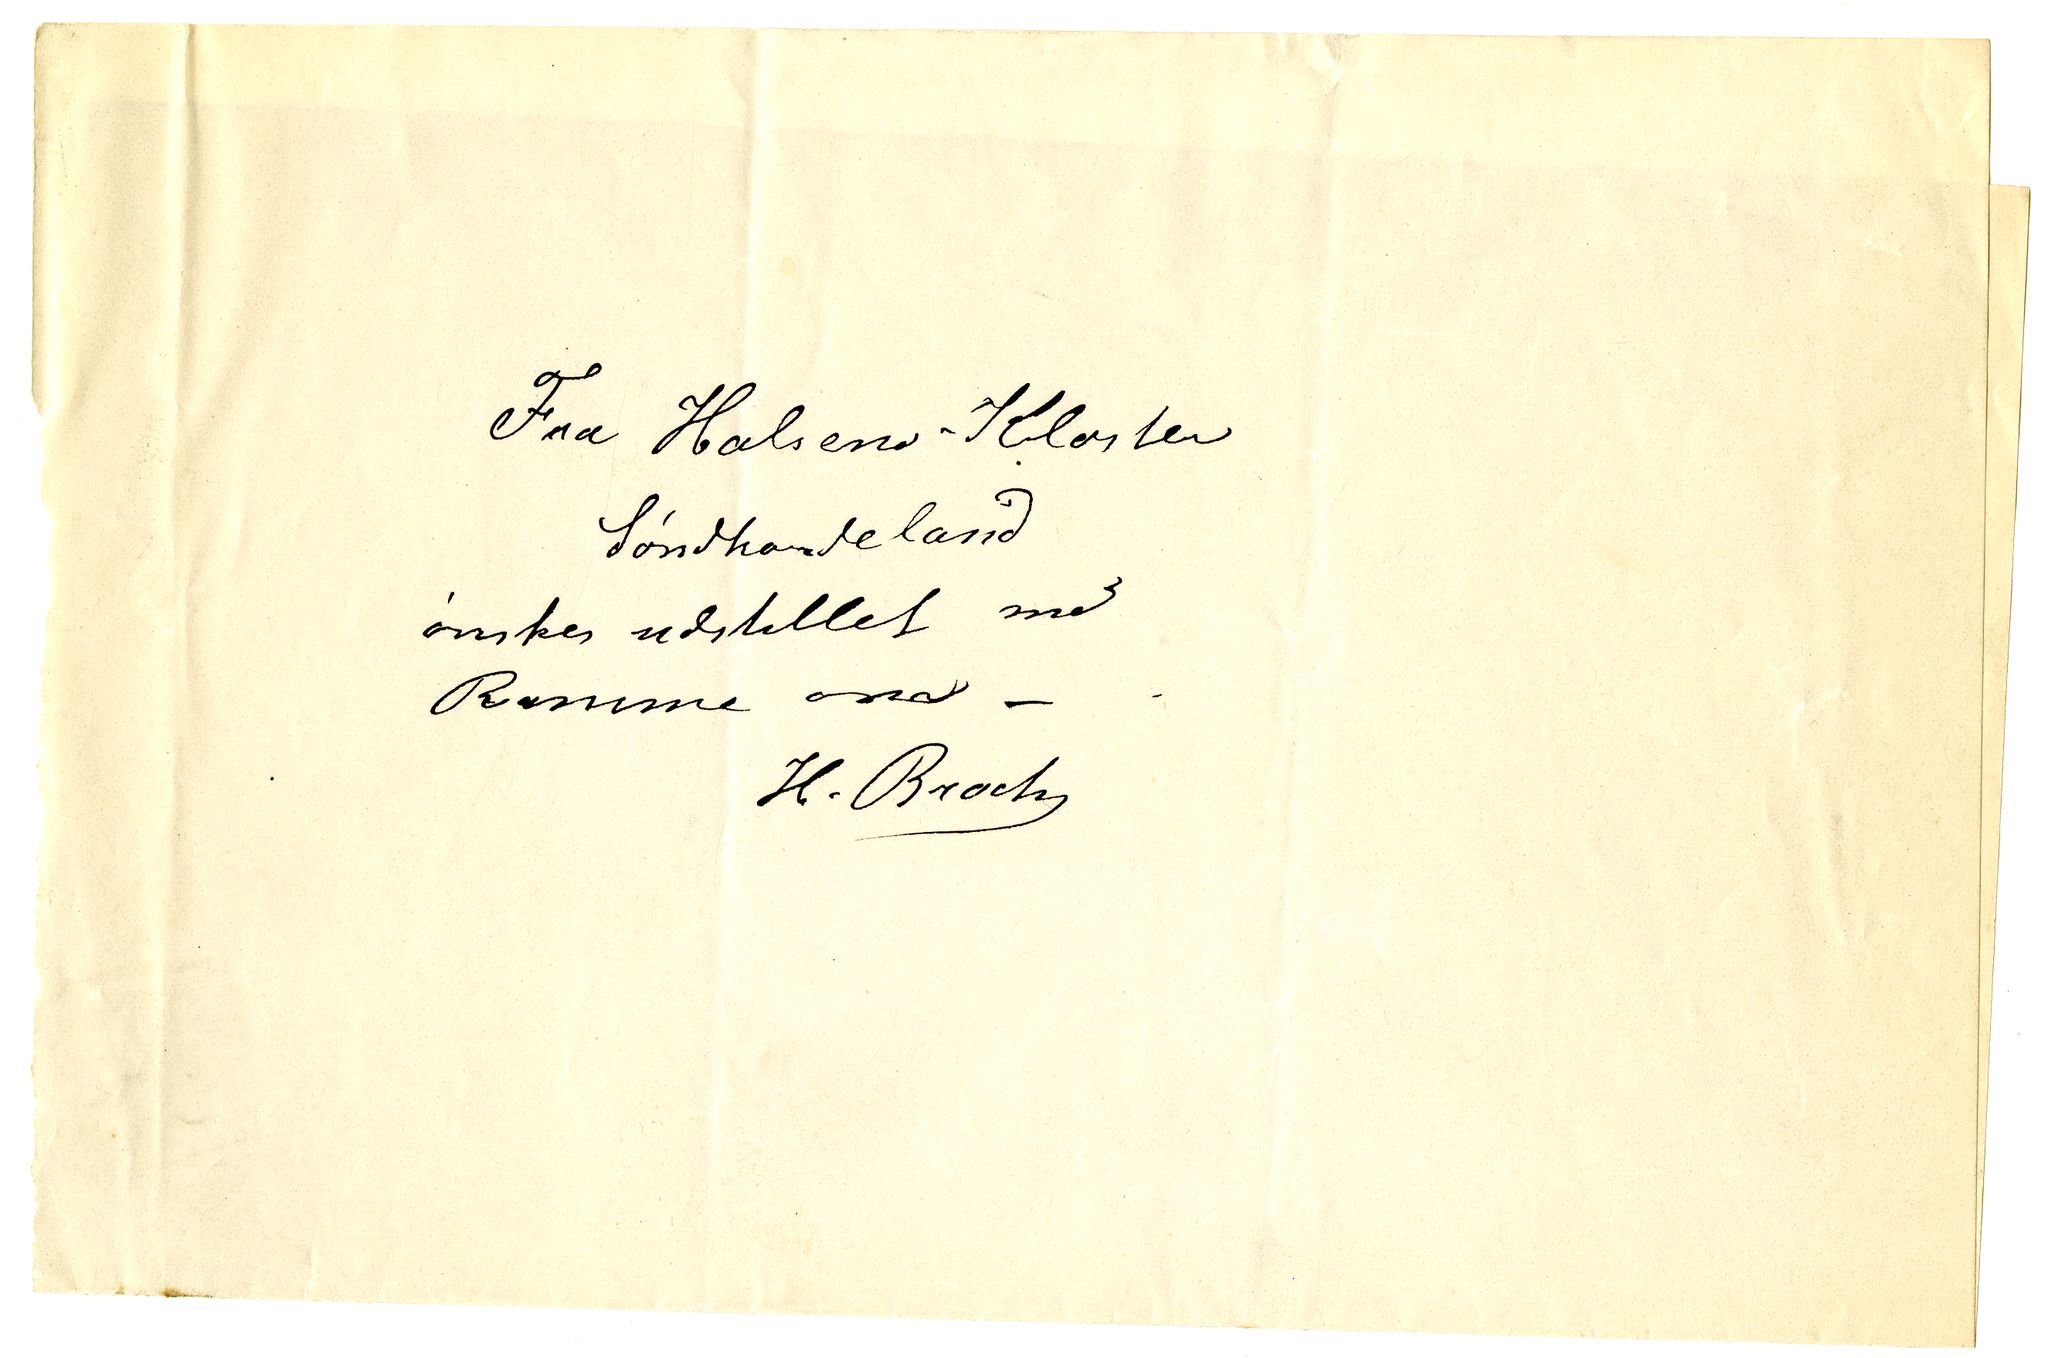 Fra Halsenø-Kloster
Söndhordeland
önskes udstillet med
Ramme om –
H. Broch